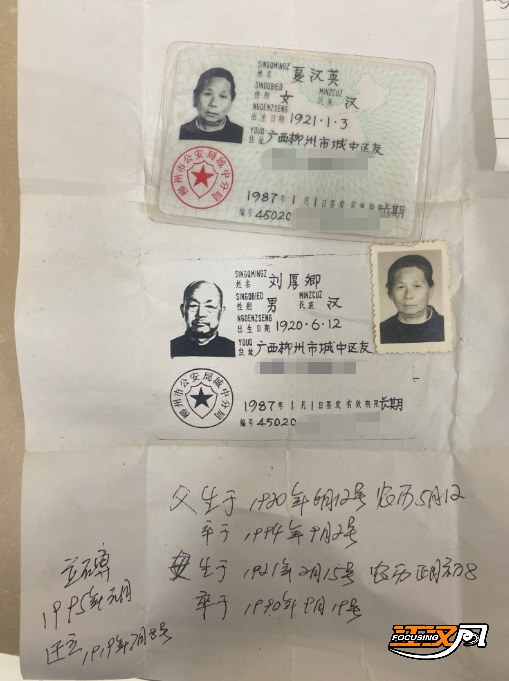 SINGQMINGZ
姓名 夏汉英
SINGQBIED MINZCUZ
性别 女 民族 汉
NGOENZSENG
出生日期 1921·1·3
YOUQ
住址 广西柳州市城中区友
柳州市公安局城中分局
1987年1月1日签发 有效期限长期
编号 45020
SINGQMINGZ
姓名 刘厚卿
SINGQBIED MINZCUZ
性别 男 民族 汉
NGOENZSENG
出生日期 1920·6·12
YOUQ
住址 广西柳州市城中区友
柳州市公安局城中分局
1987年1月1日签发 有效期限长期
编号 45020
父生于1920年6月12号 农历5月12
卒于1994年9月2号
生于1921年2月15号 农历正月初8
卒于1990年9月19号
立碑
1995年元月
FOCUSING